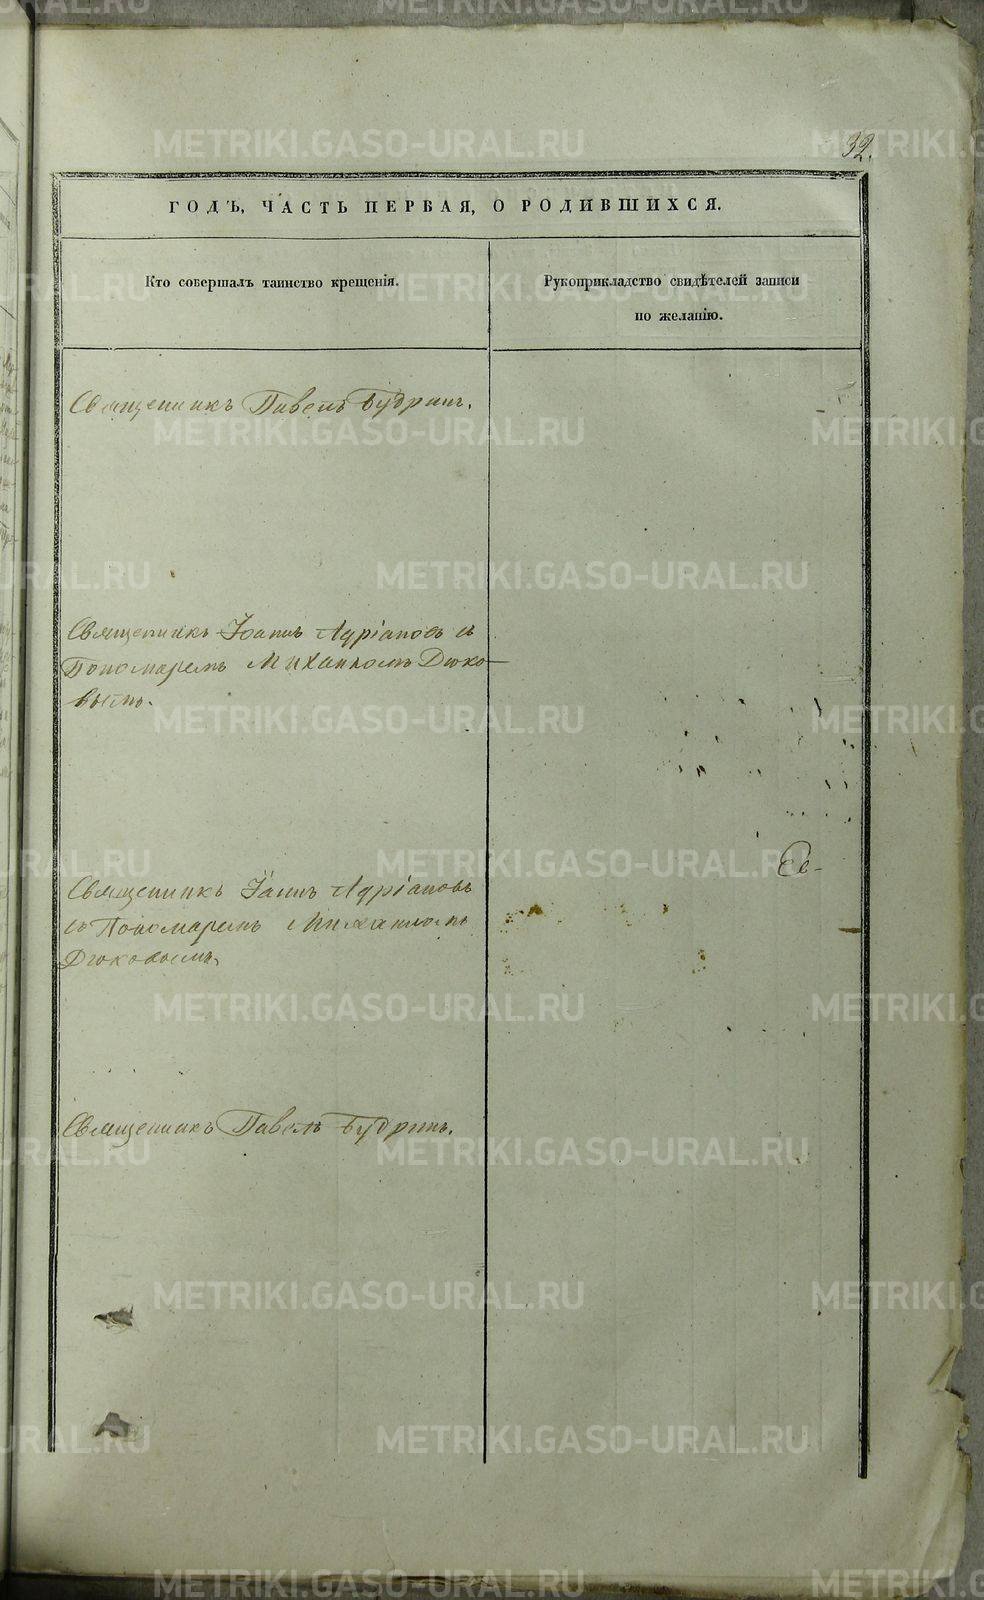 32.
ГОДЪ, ЧАСТЬ ПЕРВАЯ, О РОДИВШИХСЯ.
Кто совершалъ таинство крещенія.
Рукоприкладство свидѣтелей записи
по желанію.
Священникъ Павелъ Будринъ.
Священникъ Іоаннъ Адріановъ съ
Пономаремъ Михаиломъ Дюко-
вымъ.
Священникъ Іоаннъ Адріановъ
съ Пономаремъ Михаиломъ
Дюковымъ.
Священникъ Павелъ Будринъ.
METRIKI.GASO-URAL.RU